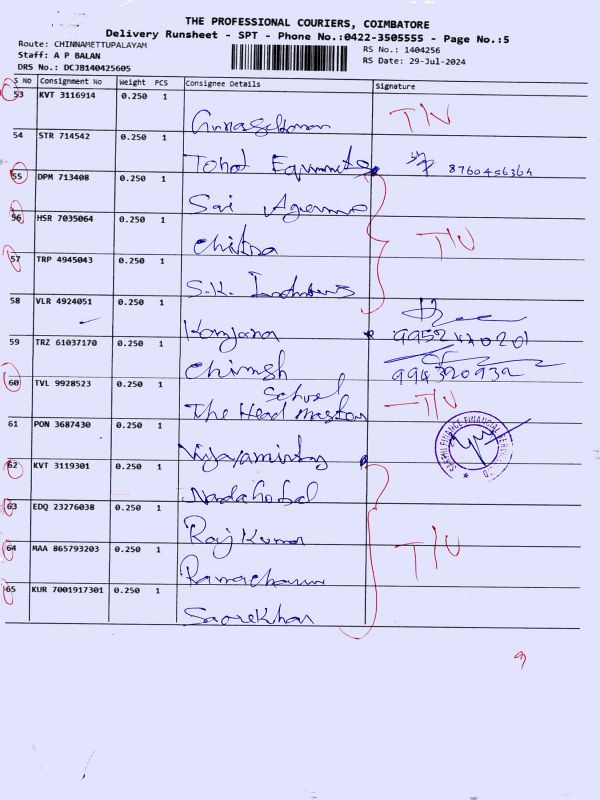 THE PROFESSIONAL COURIERS, COIMBATORE
Delivery Runsheet - SPT - Phone No.:0422-3505555 - Page No.:5
Route: CHINNAMETTUPALAYAM
Staff: A P BALAN
DRS No.: DCJB140425605
RS No.: 1404256
RS Date: 29-Jul-2024
S No Consignment No Weight PCS Consignee Details Signature
53 KVT 3116914 0.250 1
T/N
54 STR 714542 0.250 1
8760456364
55 DPM 713408 0.250 1 Sai
56 HSR 7035064 0.250 1 Chitra
T/N
57 TRP 4945043 0.250 1 S.K.
58 VLR 4924051 0.250 1
59 TRZ 61037170 0.250 1
994320932
60 TVL 9928523 0.250 1 School
The Head Master
T/N
61 PON 3687430 0.250 1
62 KVT 3119301 0.250 1
63 EDQ 23276038 0.250 1 Raj Kumar
64 MAA 865793203 0.250 1
T/N
65 KUR 7001917301 0.250 1